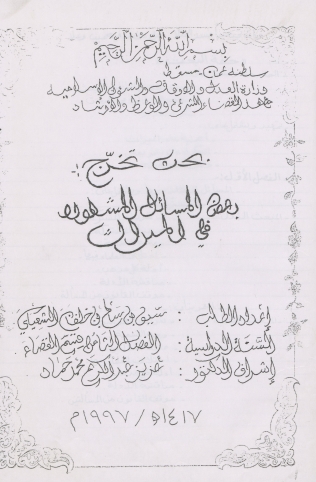 بسم الله الرحمن الرحيم
سلطنة عمان مسقط
وزارة العدل والأوقاف والشئون الإسلامية
معهد القضاء الشرعي والوعظ والإرشاد
بحث تخرج :
بعض المسائل المشهورة
في الميراث
إعداد الطالب : سيف بن سالم بن خلف الشعيلي
السنة الدراسية : الفصل الثامن قسم القضاء
إشراف الدكتور : عزيز عبد الكريم محمد حماد
١٤١٧ه / ١٩٩٧م